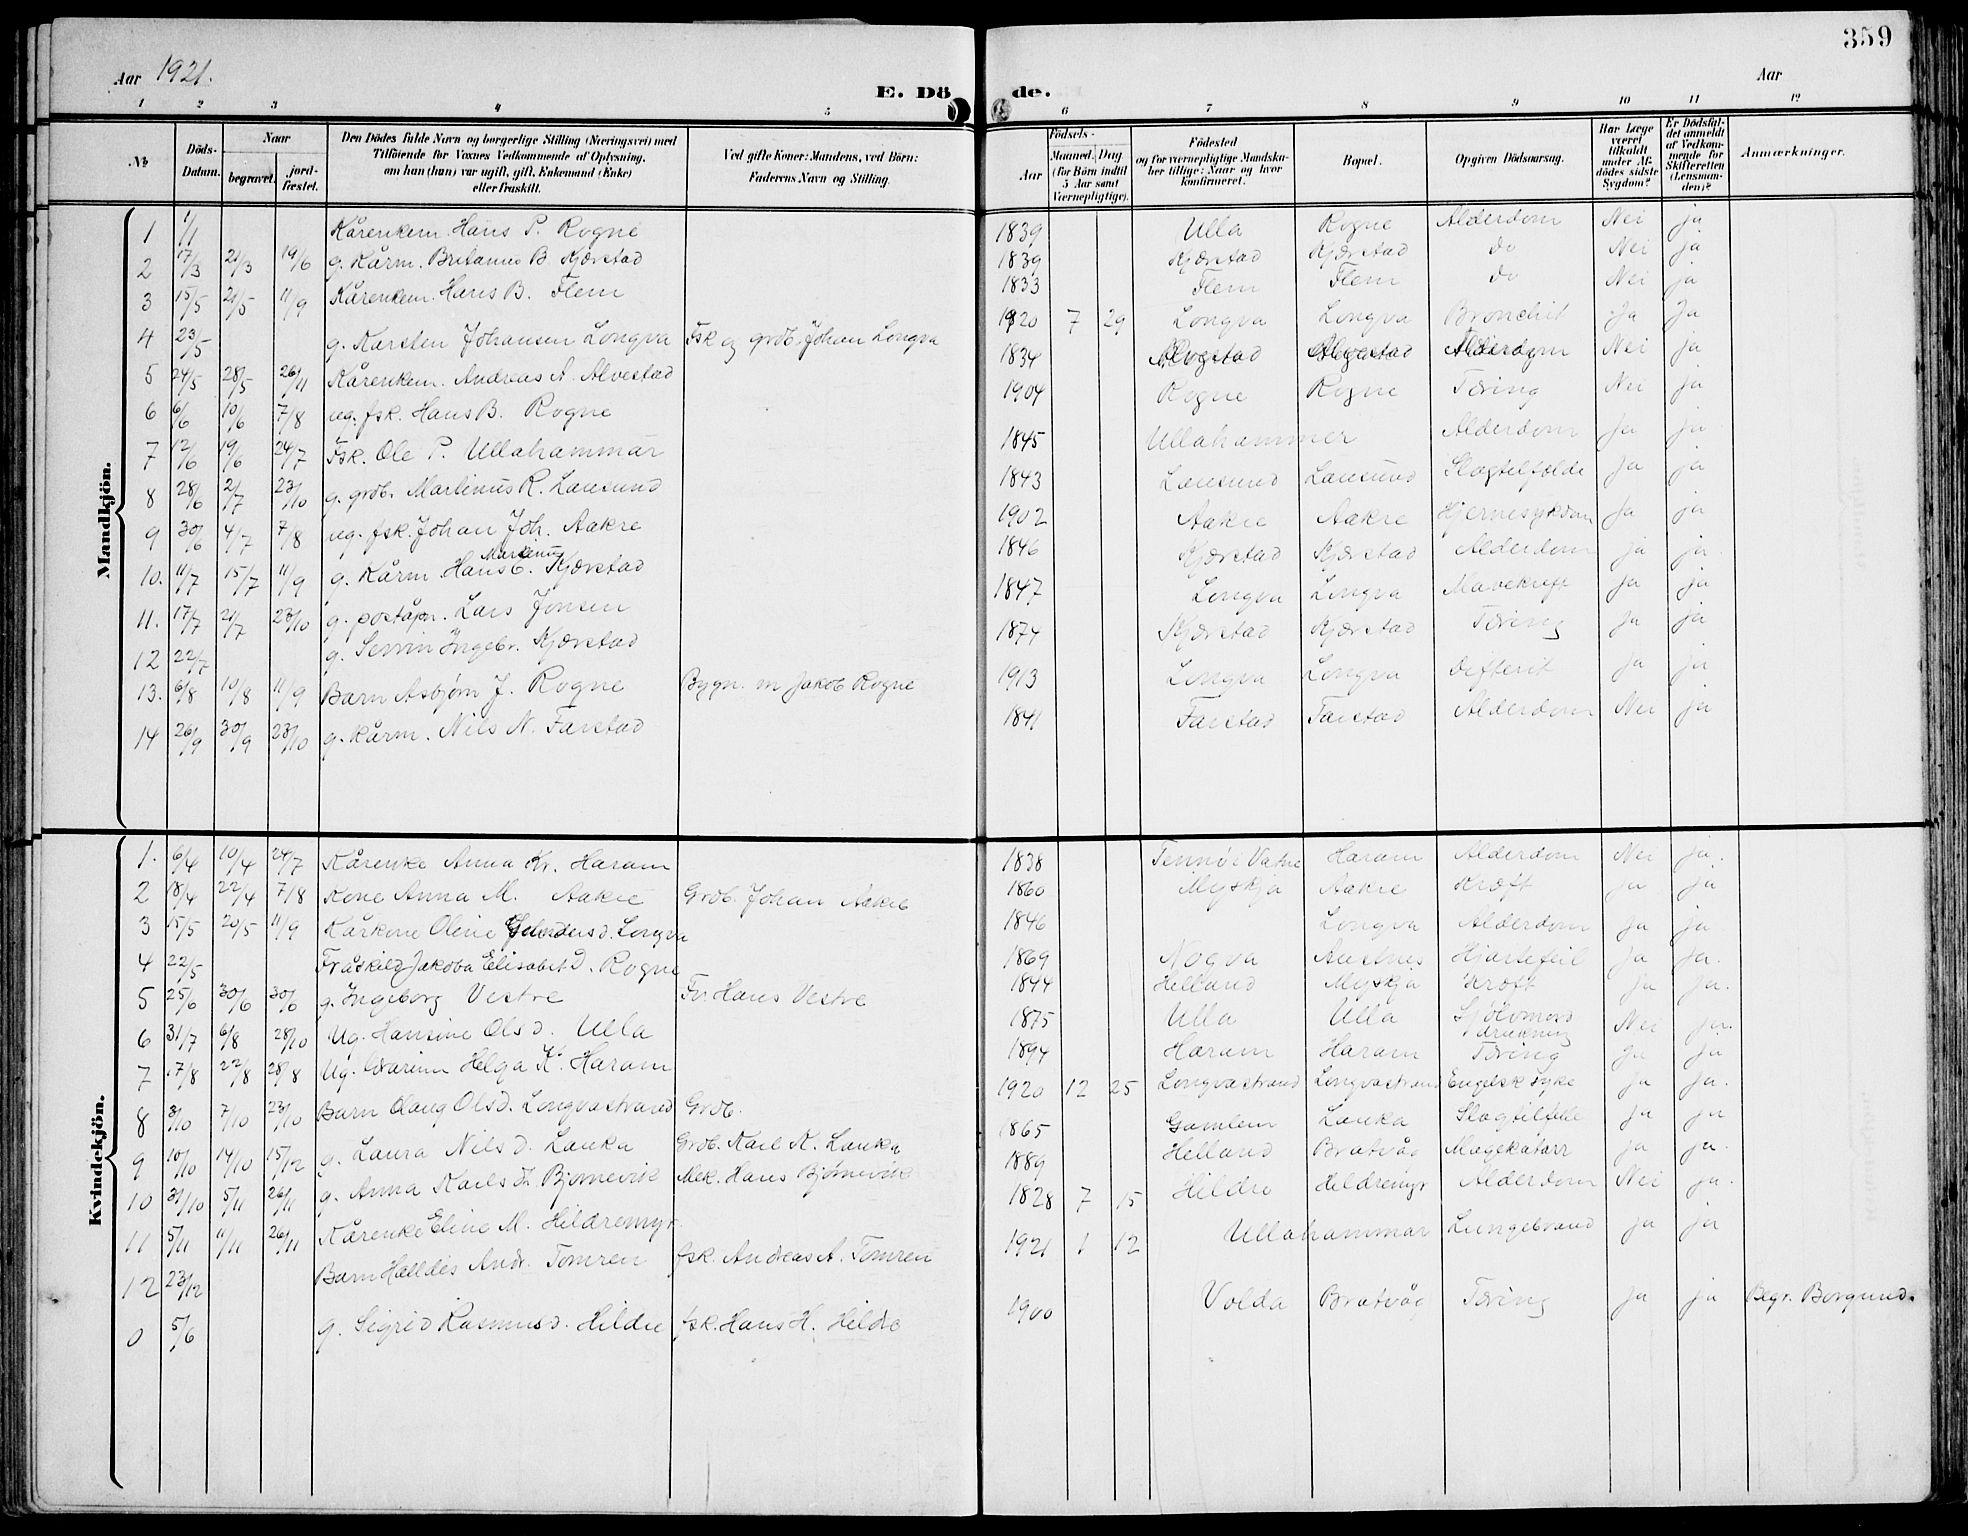 359
Aar 1921.
Aar
E. Döde.
1 2 3 4 5 6 7 8 9 10 11 12
№ Döds-Datum. Naar begravet. jord-fæstet. Den Dödes fulde Navn og borgerlige Stilling (Næringsvei) med Tilföiende for Voxnes Vedkommende af Oplysning, om han (hun) var ugift, gift, Enkemand (Enke) eller fraskilt. Ved gifte Koner: Mandens, ved Börn: Faderens Navn og Stilling. Födsels- Aar Maaned. Dag (for Börn indtil 5 Aar samt Værnepligtige). Födested og for værnepligtige Mandskaber tillige: Naar og hvor konfirmeret. Bopæl. Opgiven Dödsaarsag. Har Læge været tilkaldt under Afdödes sidste Sygdom? Er Dödsfaldet anmeldt af Vedkommende for Skifteretten (Lensmanden)? Anmærkninger.
Mandkjön.
1 1/1 Kårenkem. Hans P. Rogne 1839 Ulla Rogne Alderdom Nei ja
2 17/3 21/3 19/6 g. Kårm. Britanus B. Kjærstad 1839 Kjærstad Kjærstad do Nei ja
3 15/5 21/5 11/9 Kårenkem. Hans B. Flem 1833 Flem Flem do Nei ja
4 23/5 g. Karsten Johansen Longva Fsk og grdb. Johan Longva 1920 7 29 Longva Longva Bronchit Ja Ja
5 24/5 28/5 26/11 Kårenkem. Andreas A. Alvestad 1834 Alvestad Alvestad Alderdom Nei ja
6 6/6 10/6 7/8 ug. fsk. Hans B. Rogne 1904 Rogne Rogne Tæring Nei ja
7 12/6 19/6 24/7 Fsk. Ole P. Ullahammar 1845 Ullahammer Alderdom Ja ja
8 28/6 2/7 23/10 g. grdb. Martinus R. Lausund 1843 Lausund Lausund Slagtilfælde Ja ja
9 30/6 4/7 7/8 ug. fsk. Johan Joh. Aakre 1902 Aakre Aakre Hjernesykdom Ja ja
10. 11/7 15/7 11/9 g. Kårm. Hans Martinus Kjærstad 1846 Kjærstad Kjærstad Alderdom ja ja
11. 17/7 21/7 23/10 g. poståpn. Lars Jonsen 1847 Longva Longva Mavekreft Ja ja
12 22/7 g. Servin Ingebr. Kjærstad 1874 Kjærstad Kjærstad Tæring Ja ja
13. 6/8 10/8 11/9 Barn Asbjørn J. Rogne Bygn. m Jakob Rogne 1913 Longva Longva Difterit ja ja
14 26/9 30/9 23/10 g. kårm. Nils N. Farstad 1841 Farstad Farstad Alderdom Nei ja
Kvindekjön.
1. 6/4 10/4 24/7 Kårenke Anna Kr. Haram 1838 Tennø i Vatne Haram Alderdom Nei ja.
2 18/4 22/4 7/8 Kone Anna M. Aakre Grdb. Johan Aakre 1860 Myskja Aakre Kræft ja ja
3 15/5 20/5 11/9 Kårkone Oline d. Longva 1846 Longva Alderdom ja ja
4 22/5 Fraskild Jakoba Elisabet D. Rogne 1869 Nogva Austnes Hjertefeil Ja ja.
5 25/6 30/6 30/6 g. Ingeborg Vestre Hans Vestre 1844 Helland Myskja Kræft ja ja.
6 31/7 6/8 28/10 Ug. Hansine Ols d. Ulla 1875 Ulla Ulla Sjølvmord drukning Nei ja.
7 17/8 22/8 28/8 Ug. Helga K. Haram 1894 Haram Haram Tæring ja ja
8 3/10 7/10 23/10 Barn Olaug Olsd. Longvastrand Grdb. 1920 12 25 Longvastrand Longvastrand Engelsk syke ja ja.
9 10/10 14/10 15/12 g. Laura Nils d. Lauka Grdb. Karl K. Lauka 1865 Gamlem Lauka Slagtilfelle ja ja
10 31/10 5/11 26/11 g. Anna Karls d. Bjørnevik Mek. Hans Bjørnevik 1889 Helland Bratvåg Magekatarr ja ja.
11 5/11 11/11 26/11 Kårenke Eline M. Hildremyr. 1828 7 15 Hildre Hildremyr Alderdom Nei ja.
12 23/12 Barn Halldis Andr. Tomren fsk. Andreas A. Tomren 1921 1 12 Ullahammar Lungebrand ja ja
0 5/6 g. Sigrid Rasmusd. Hildre fsk. Hans H. Hildre 1900 Volda Bratvåg Tæring ja ja Begr. Borgund.